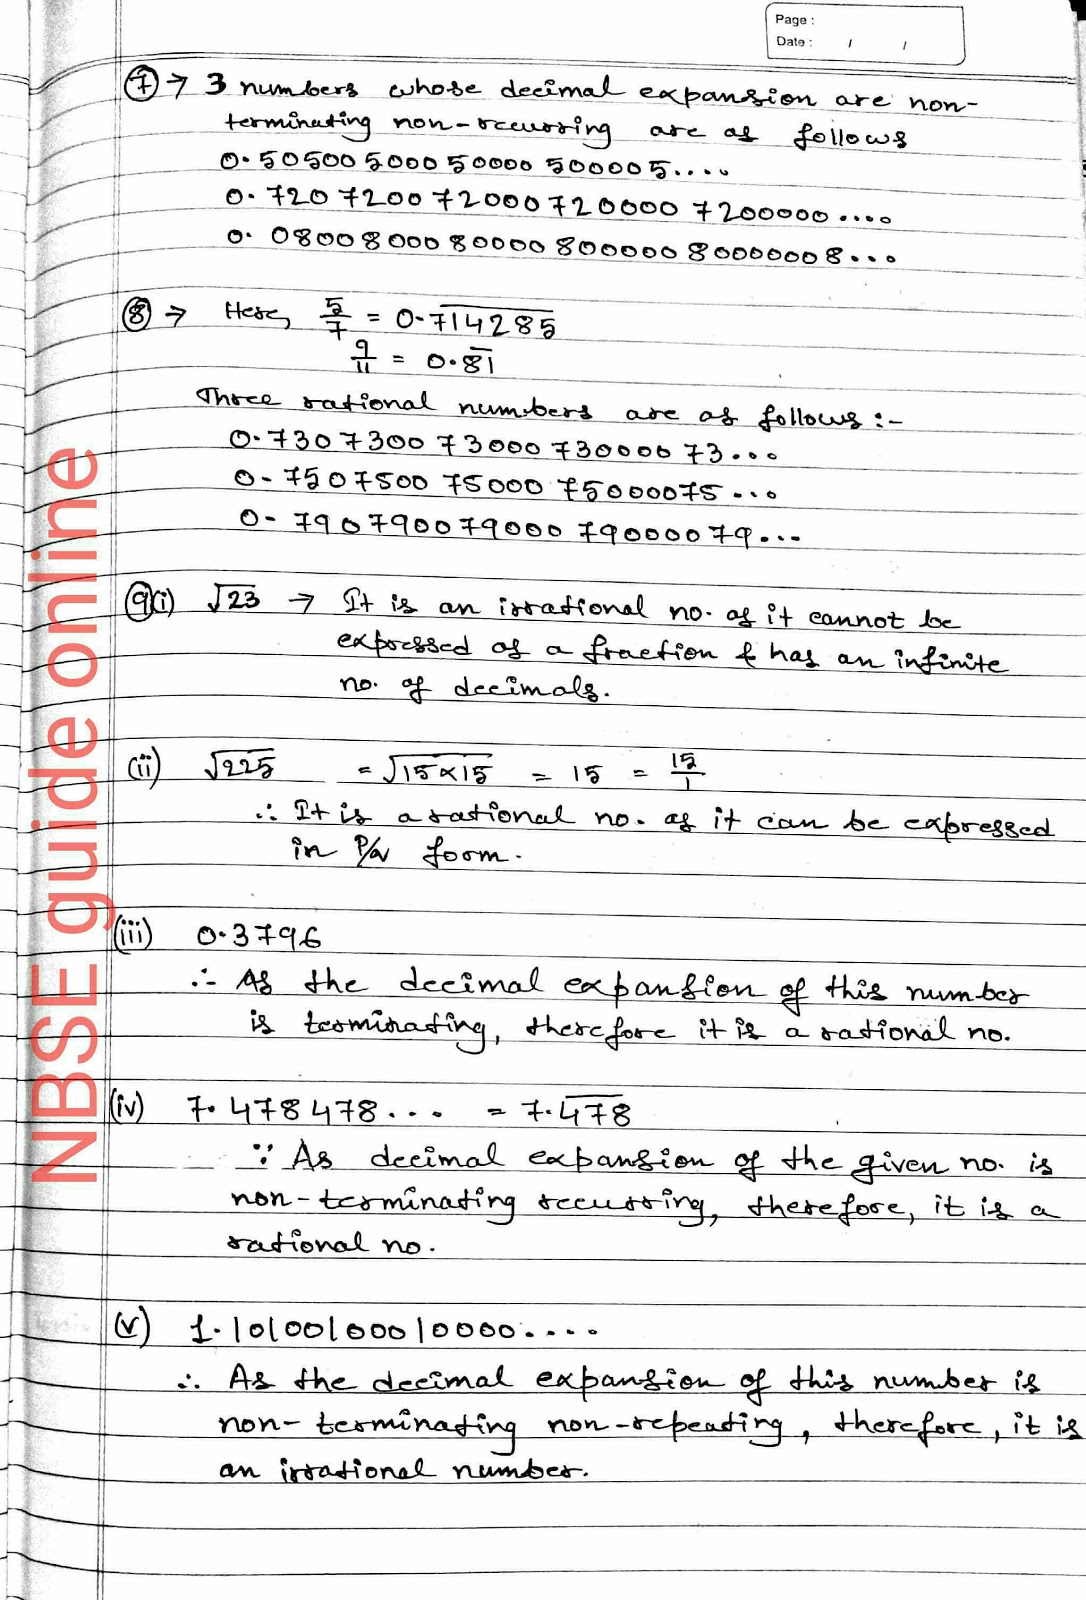 Page :
Date : / /
⑦ → 3 numbers whose decimal expansion are non-
terminating non-recurring are as follows
0.50500500050000500005....
0.7207200720007200007200000....
0.080080008000080000080000008...
⑧ → Here, 5/7 = 0.7̅1̅4̅2̅8̅5̅
9/11 = 0.8̅1̅
Three rational numbers are as follows :-
0.73073007300073000073...
0.75075007500075000075...
0.79079007900079000079...
⑨(i) √23 → It is an irrational no. as it cannot be
expressed as a fraction & has an infinite
no. of decimals.
(ii) √225 = √15×15 = 15 = 15/1
∴ It is a rational no. as it can be expressed
in P/q form.
(iii) 0.3796
∴ As the decimal expansion of this number
is terminating, therefore it is a rational no.
(iv) 7.478478... = 7.4̅7̅8̅
∵ As decimal expansion of the given no. is
non-terminating recurring, therefore, it is a
rational no.
(v) 1.10100100010000....
∴ As the decimal expansion of this number is
non-terminating non-repeating, therefore, it is
an irrational number.
NBSE guide online